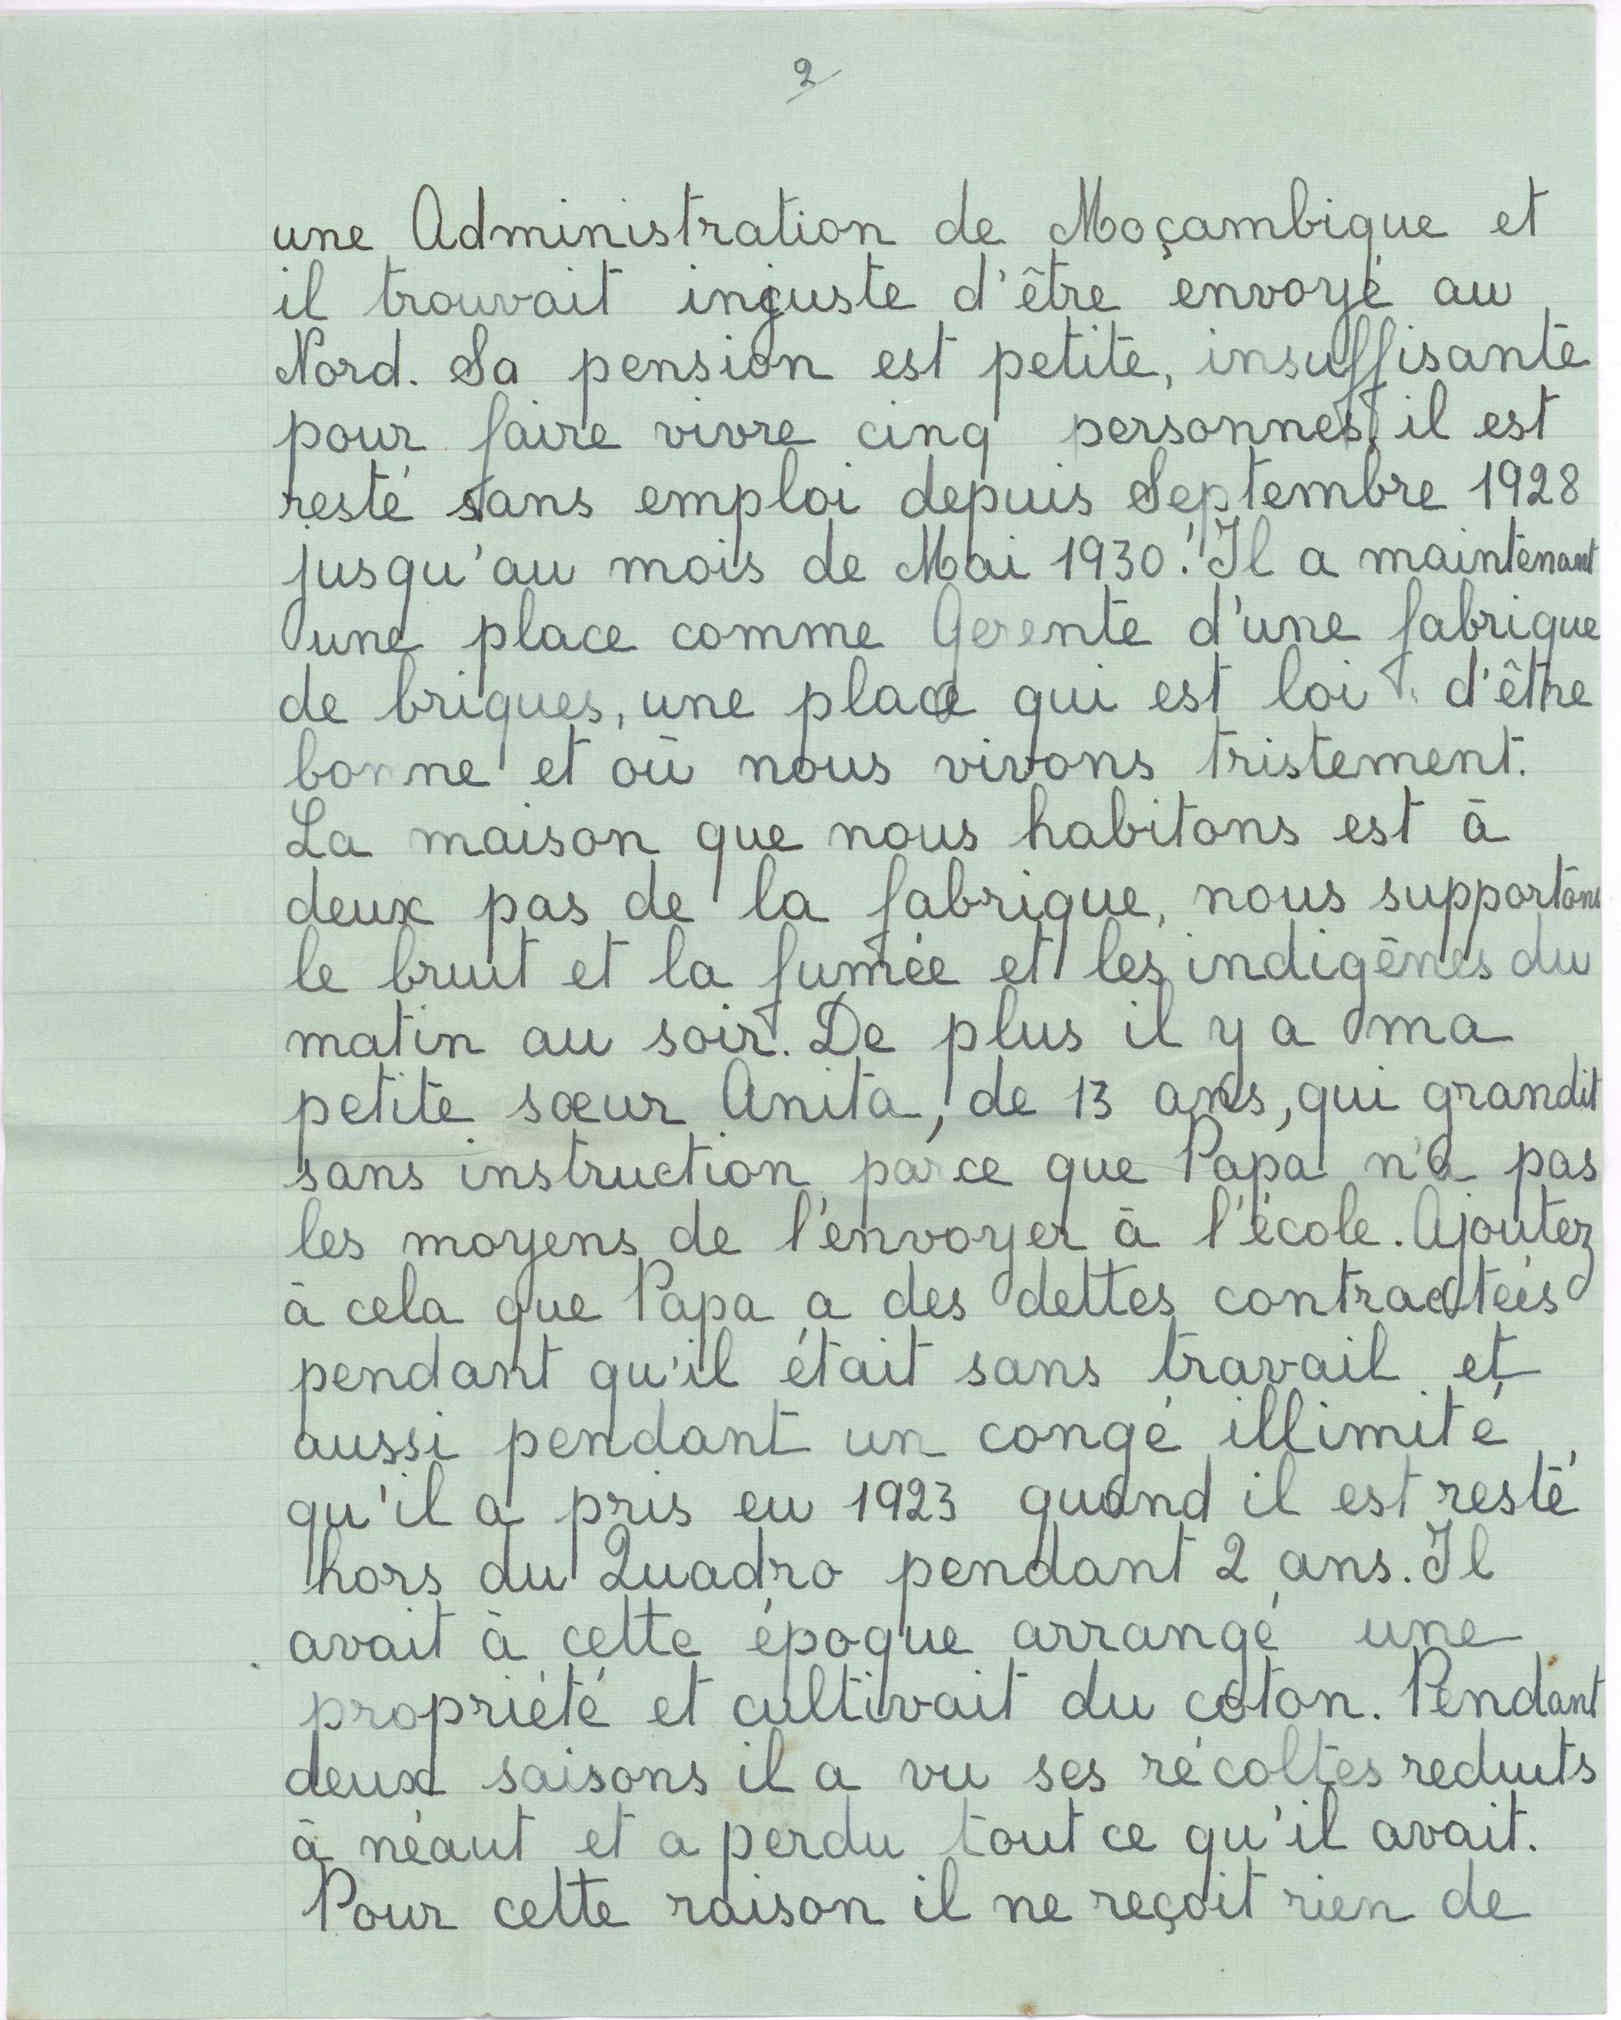 2
une Administration de Moçambique et
il trouvait injuste d'être envoyé au
Nord. Sa pension est petite, insuffisante
pour faire vivre cinq personnes, il est
resté sans emploi depuis Septembre 1928
jusqu'au mois de Mai 1930! Il a maintenant
une place comme Gerente d'une fabrique
de briques, une place qui est loi d'être
bonne et où nous vivons tristement.
La maison que nous habitons est à
deux pas de la fabrique, nous supportons
le bruit et la fumée et les indigènes du
matin au soir. De plus il y a ma
petite sœur Anita, de 13 ans, qui grandit
sans instruction parce que Papa n'a pas
les moyens de l'envoyer à l'école. Ajoutez
à cela que Papa a des dettes contractées
pendant qu'il était sans travail et
aussi pendant un congé illimité
qu'il a pris eu 1923 quand il est resté
hors du Quadro pendant 2 ans. Il
avait à cette époque arrangé une
propriété et cultivait du coton. Pendant
deux saisons il a vu ses récoltes reduits
à néaut et a perdu tout ce qu'il avait.
Pour cette raison il ne reçoit rien de